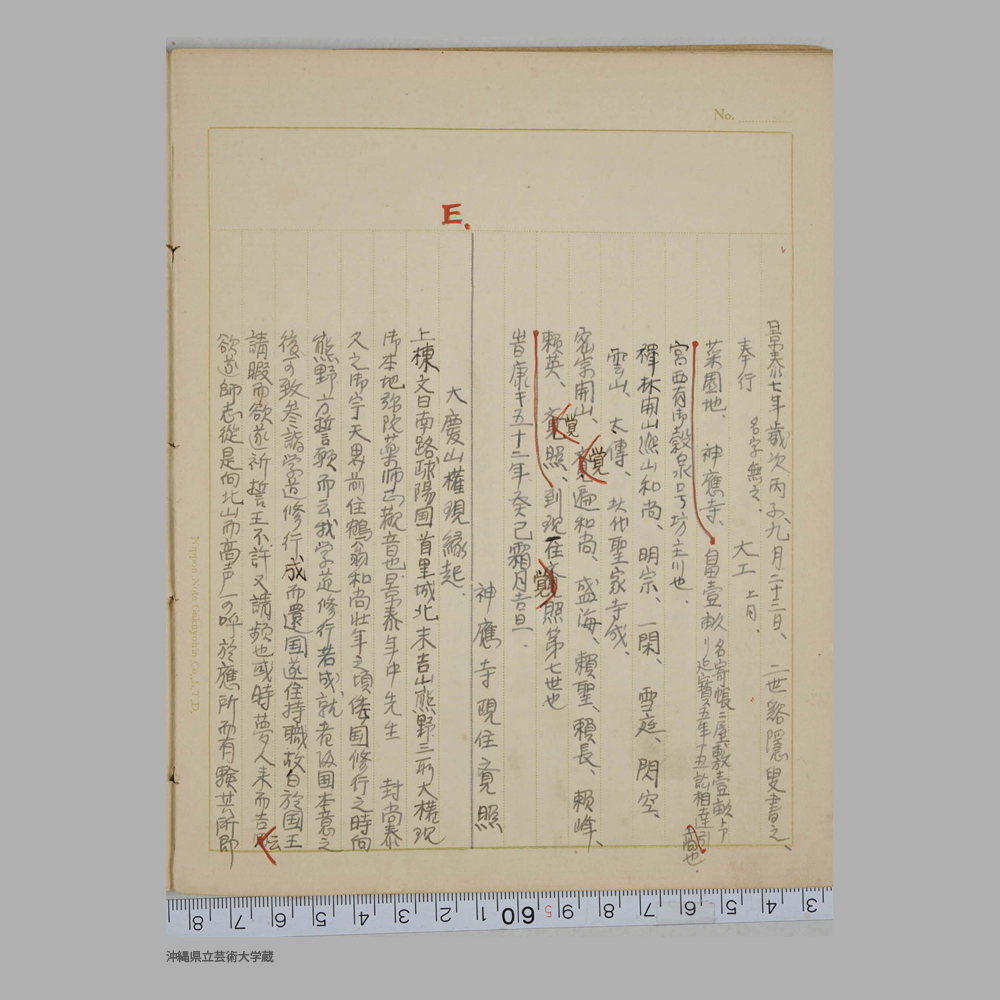 No.
景泰七年歳次丙子九月二十三日、 二世谿隠叟書之、
奉行 名字無之、 大工 上同、
菜園地、 神應寺、 畠壹畝 名寄帳ニ屋敷壹畝
宮西有御穀泉口号坊主川也、
禅林開山 和尚、明宗、一閑、雪庭、閃空、
雲山、太傳、 此他聖家寺成、
密宗開山、覚遍和尚、盛海、賴聖、賴長、賴峰、
賴英、覚照、到現在覚照第七世也
旹康キ五十二年癸己霜月吉旦、
神應寺現住覚照
E.
大慶山權現縁起、
上棟文曰南路球陽国首里城北末吉山熊野三所大権現
御本地弥陀薬師 觀音也景泰年中先生 封尚泰
久之御宇天界前住鶴翁和尚壮年之頃倭国修行之時向
熊野方誓願而云我学道修行若成就者皈国本意之
後可致参詣学道修行成而還国遂住持職故白於国王
請暇而欲遂祈誓王不許又請頻也或時夢人来而告云
欲遂師志從是向北山而高声可呼於應所而有驗其所即
Nippon Note Gakuyohin Co., L.T.D.
8 7 6 5 4 3 2 1 60 9 8 7 6 5 4 3
沖縄県立芸術大学蔵